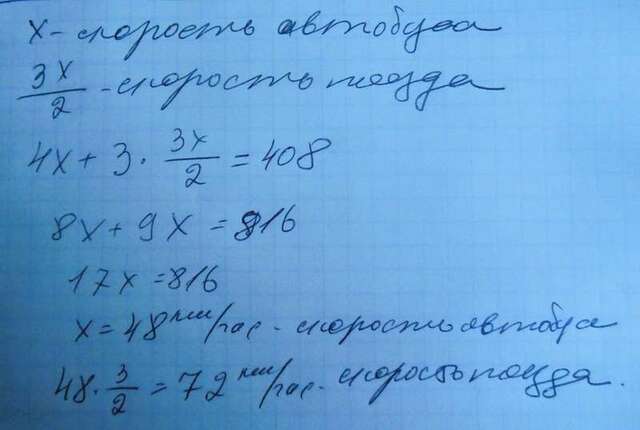 x - скорость автобуса
3x/2 - скорость поезда
4x + 3 · 3x/2 = 408
8x + 9x = 816
17x = 816
x = 48 км/час - скорость автобуса
48 · 3/2 = 72 км/час - скорость поезда.